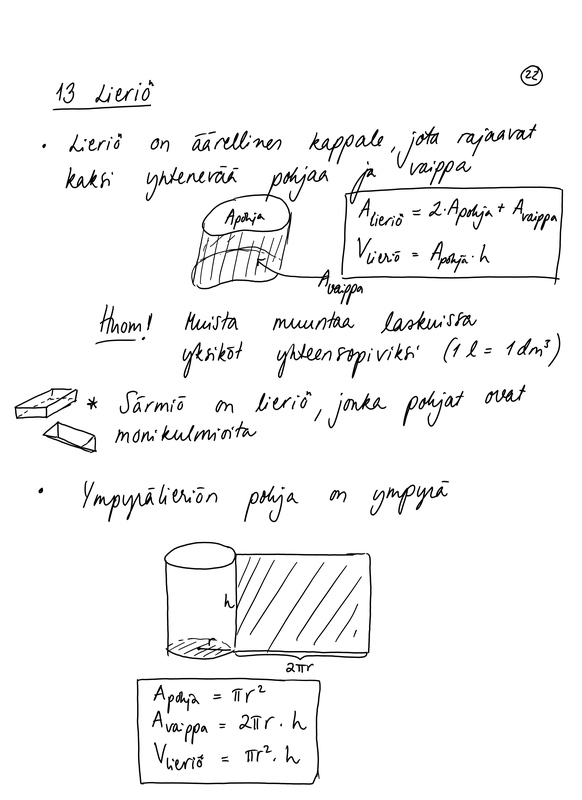 22
13 Lieriö
• Lieriö on äärellinen kappale, jota rajaavat
kaksi yhtenevää pohjaa ja vaippa
Apohja
Alieriö = 2·Apohja + Avaippa
Vlieriö = Apohja·h
Avaippa
Huom! Muista muuntaa laskuissa
yksiköt yhteensopiviksi (1 l = 1 dm³)
* Särmiö on lieriö, jonka pohjat ovat
monikulmioita
• Ympyrälieriön pohja on ympyrä
h
r
2πr
Apohja = πr²
Avaippa = 2πr · h
Vlieriö = πr² · h